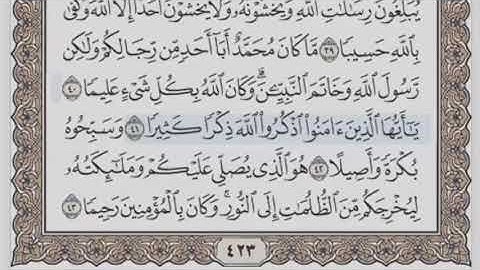 يُبَلِّغُونَ رِسَٰلَٰتِ ٱللَّهِ وَيَخْشَوْنَهُۥ وَلَا يَخْشَوْنَ أَحَدًا إِلَّا ٱللَّهَ وَكَفَىٰ
بِٱللَّهِ حَسِيبًا ٣٩ مَّا كَانَ مُحَمَّدٌ أَبَآ أَحَدٍ مِّن رِّجَالِكُمْ وَلَٰكِن
رَّسُولَ ٱللَّهِ وَخَاتَمَ ٱلنَّبِيِّـۧنَ ۗ وَكَانَ ٱللَّهُ بِكُلِّ شَىْءٍ عَلِيمًا ٤٠
يَٰٓأَيُّهَا ٱلَّذِينَ ءَامَنُوا۟ ٱذْكُرُوا۟ ٱللَّهَ ذِكْرًا كَثِيرًا ٤١ وَسَبِّحُوهُ
بُكْرَةً وَأَصِيلًا ٤٢ هُوَ ٱلَّذِى يُصَلِّى عَلَيْكُمْ وَمَلَٰٓئِكَتُهُۥ
لِيُخْرِجَكُم مِّنَ ٱلظُّلُمَٰتِ إِلَى ٱلنُّورِ ۚ وَكَانَ بِٱلْمُؤْمِنِينَ رَحِيمًا ٤٣
٤٢٣